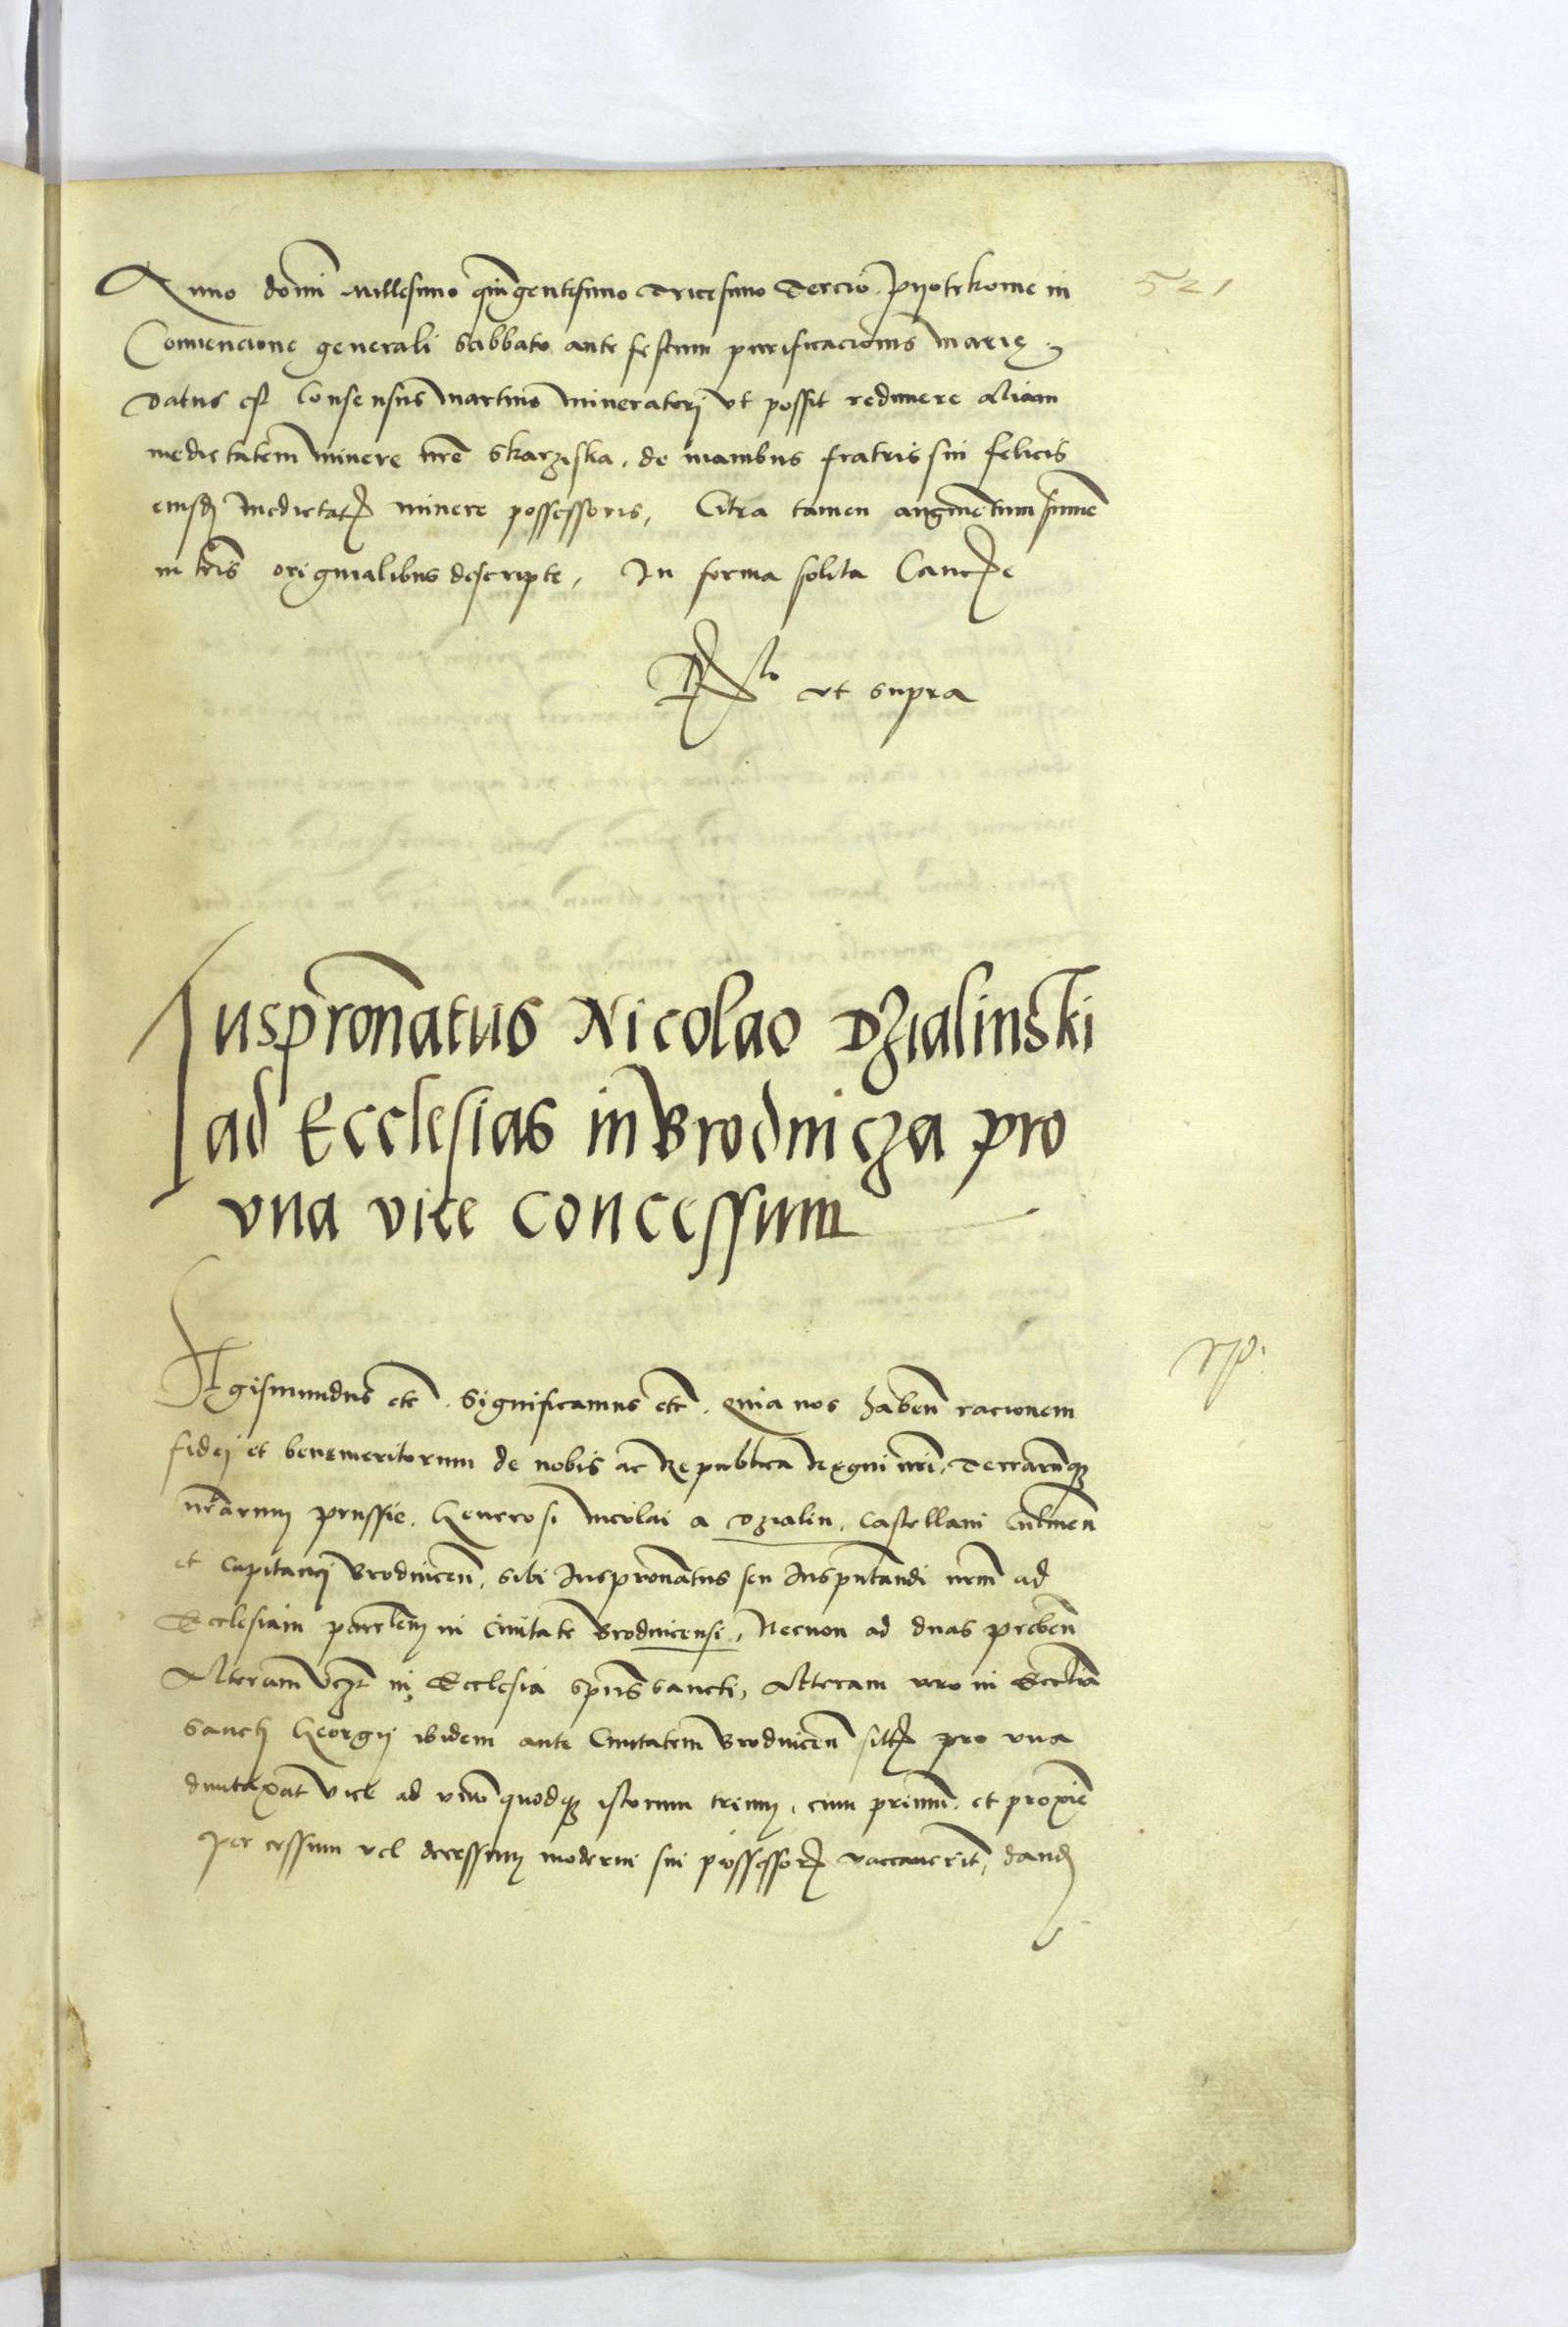 521
Anno domi Millesimo quigentesimo Tricesimo Tercio Pyotrkowie in
Conuencione generali Sabbato ante festum purificacionis Marię
Datus est Consensus Martino Mineratorj vt possit redimere aliam
medietatem Minere nre Skarziska, de manibus fratris sui felicis
eiusdj medietatj minere possessoris, Citra tamen augmentum summe
in lris originalibus descripte, In forma solita Cancrie
Rlo vt supra
Iuspronatus Nicolao Dzialinski
ad Ecclesias in Brodnicza pro
vna vice concessum
Sigismundus etc. Significamus etc. Quia nos haben racionem
fidej et benemeritorum de nobis ac Republica Regni nri, Terrarumq
nrarum prussie. Generosi Nicolai a Dzialin, Castellani Culmen
et Capitanej Brodnicen, sibi Iuspronatus seu Iuspntandi nrm ad
Ecclesiam parrlem in Ciuitate Brodnicensi, Necnon ad duas preben
Alteram vczt in Ecclesia Spus sancti, Alteram vero in Ecclia
Sancti Georgij ibidem ante Ciuitatem Brodnicen sitj pro vna
duntaxat vice ad vnuquodq istorum trium, cum primum et proxie
per cessum vel decessum moderni sui possessorj vaccauerit, dandj